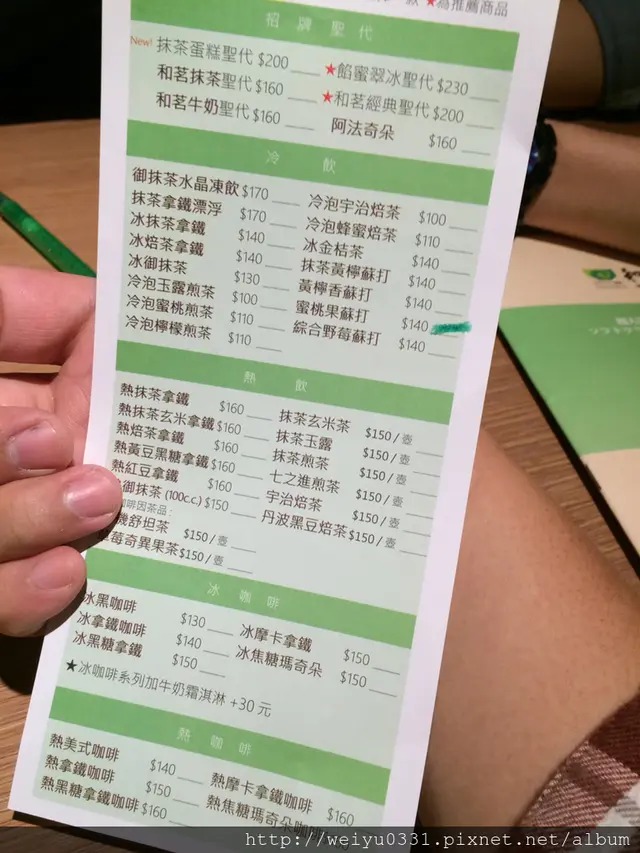 ★為推薦商品
招牌聖代
New! 抹茶蛋糕聖代 $200
和茗抹茶聖代 $160
和茗牛奶聖代 $160
★餡蜜翠冰聖代 $230
★和茗經典聖代 $200
阿法奇朵 $160
冷飲
御抹茶水晶凍飲 $170
抹茶拿鐵漂浮 $170
冰抹茶拿鐵 $140
冰焙茶拿鐵 $140
冰御抹茶 $130
冷泡玉露煎茶 $100
冷泡蜜桃煎茶 $110
冷泡檸檬煎茶 $110
冷泡宇治焙茶 $100
冷泡蜂蜜焙茶 $110
冰金桔茶 $140
抹茶黃檸蘇打 $140
黃檸香蘇打 $140
蜜桃果蘇打 $140
綜合野莓蘇打 $140
熱飲
熱抹茶拿鐵 $160
熱抹茶玄米拿鐵 $160
熱焙茶拿鐵 $160
熱黃豆黑糖拿鐵 $160
熱紅豆拿鐵 $160
御抹茶 (100c.c.) $150
咖啡因茶品:
舒坦茶 $150/壺
莓奇異果茶 $150/壺
抹茶玄米茶 $150/壺
抹茶玉露 $150/壺
抹茶煎茶 $150/壺
七之進煎茶 $150/壺
宇治焙茶 $150/壺
丹波黑豆焙茶 $150/壺
冰咖啡
冰黑咖啡 $130
冰拿鐵咖啡 $140
冰黑糖拿鐵 $150
冰摩卡拿鐵 $150
冰焦糖瑪奇朵 $150
★冰咖啡系列加牛奶霜淇淋 +30 元
熱咖啡
熱美式咖啡 $140
熱拿鐵咖啡 $150
熱黑糖拿鐵咖啡 $160
熱摩卡拿鐵咖啡 $160
熱焦糖瑪奇朵咖啡
http://weiyu0331.pixnet.net/album